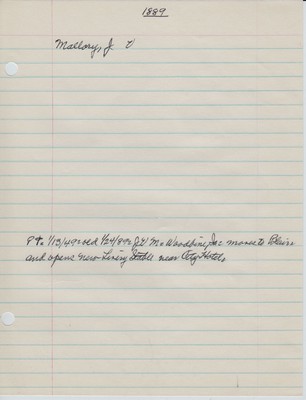 1889
Mallory, J. V
Pt. 1/13/49 old 1/24/89 = J V M. Woodbine, Ia = moves to Blair
and opens new Livery Stable near City Hotel.